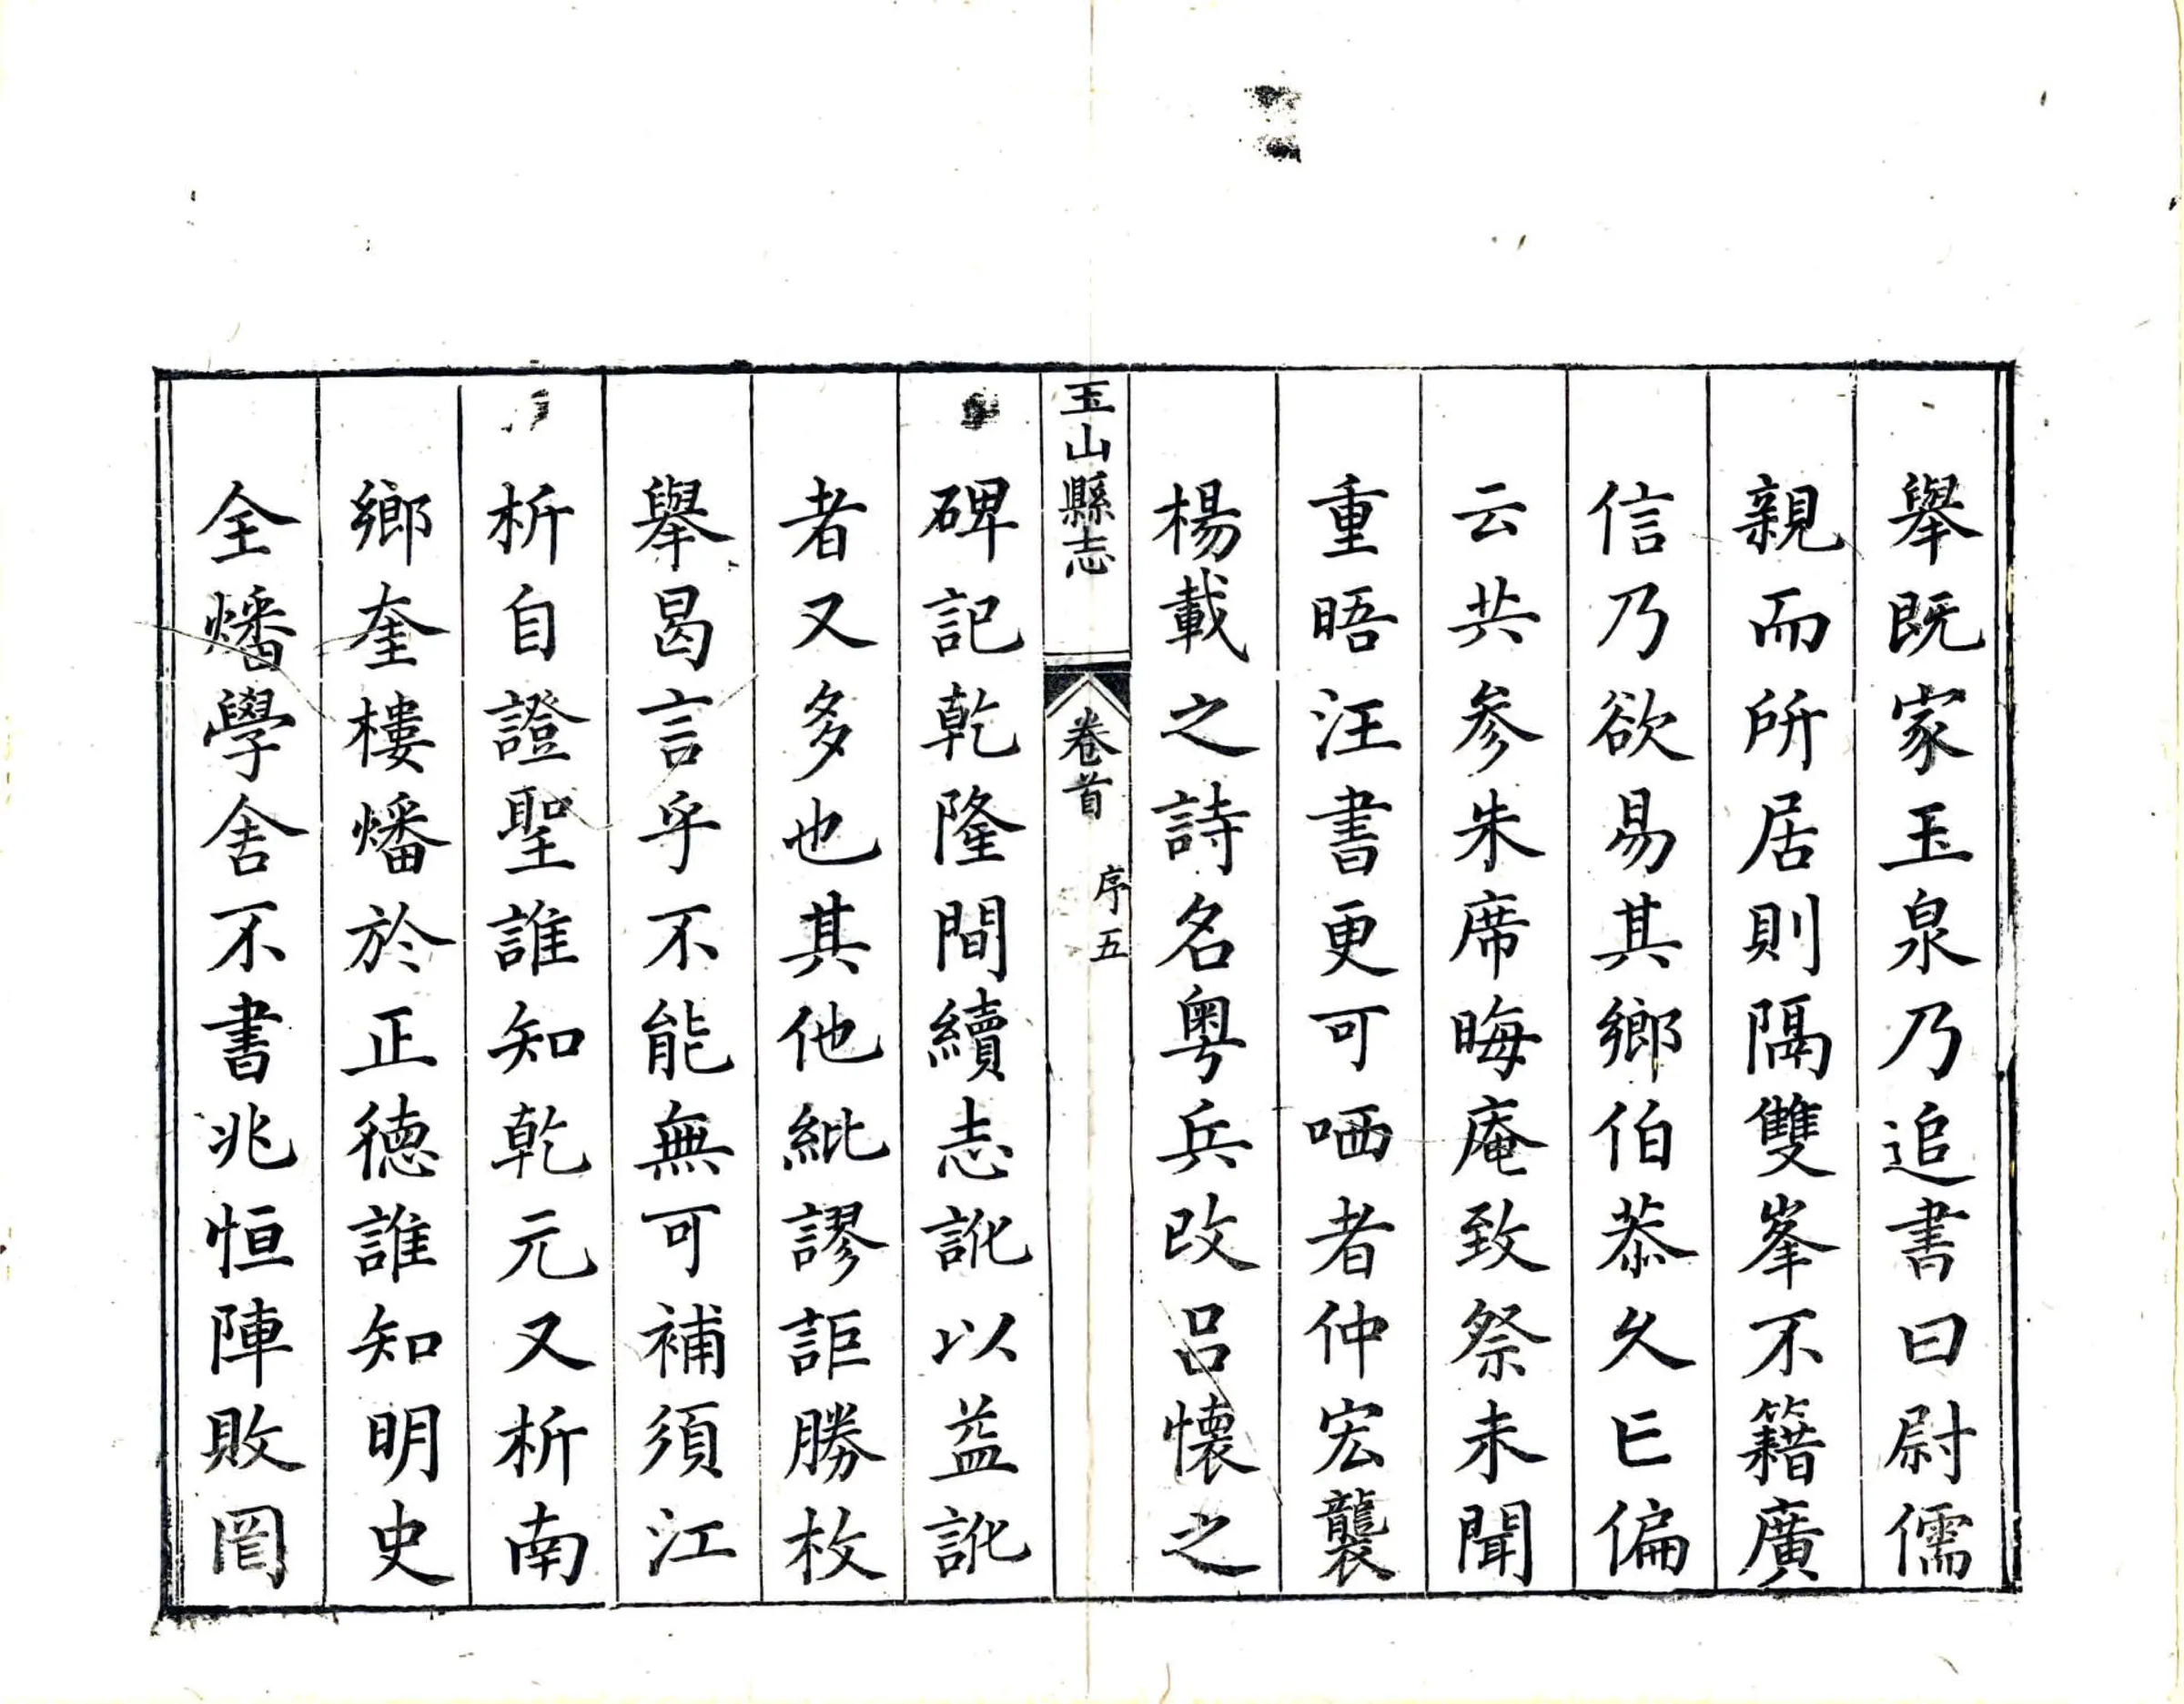 舉既家玉泉乃追書曰尉儒
親而所居則隔雙峯不籍廣
信乃欲易其鄉伯恭久已偏
云共参朱席晦庵致祭未聞
重晤汪書更可哂者仲宏襲
楊載之詩名粤兵改呂懷之
玉山縣志
卷首
序五
碑記乾隆間續志訛以益訛
者又多也其他紕謬詎勝枚
舉曷言乎不能無可補須江
析自證聖誰知乾元又析南
鄉奎樓燔於正德誰知明史
全燔學舍不書兆恒陣敗罔